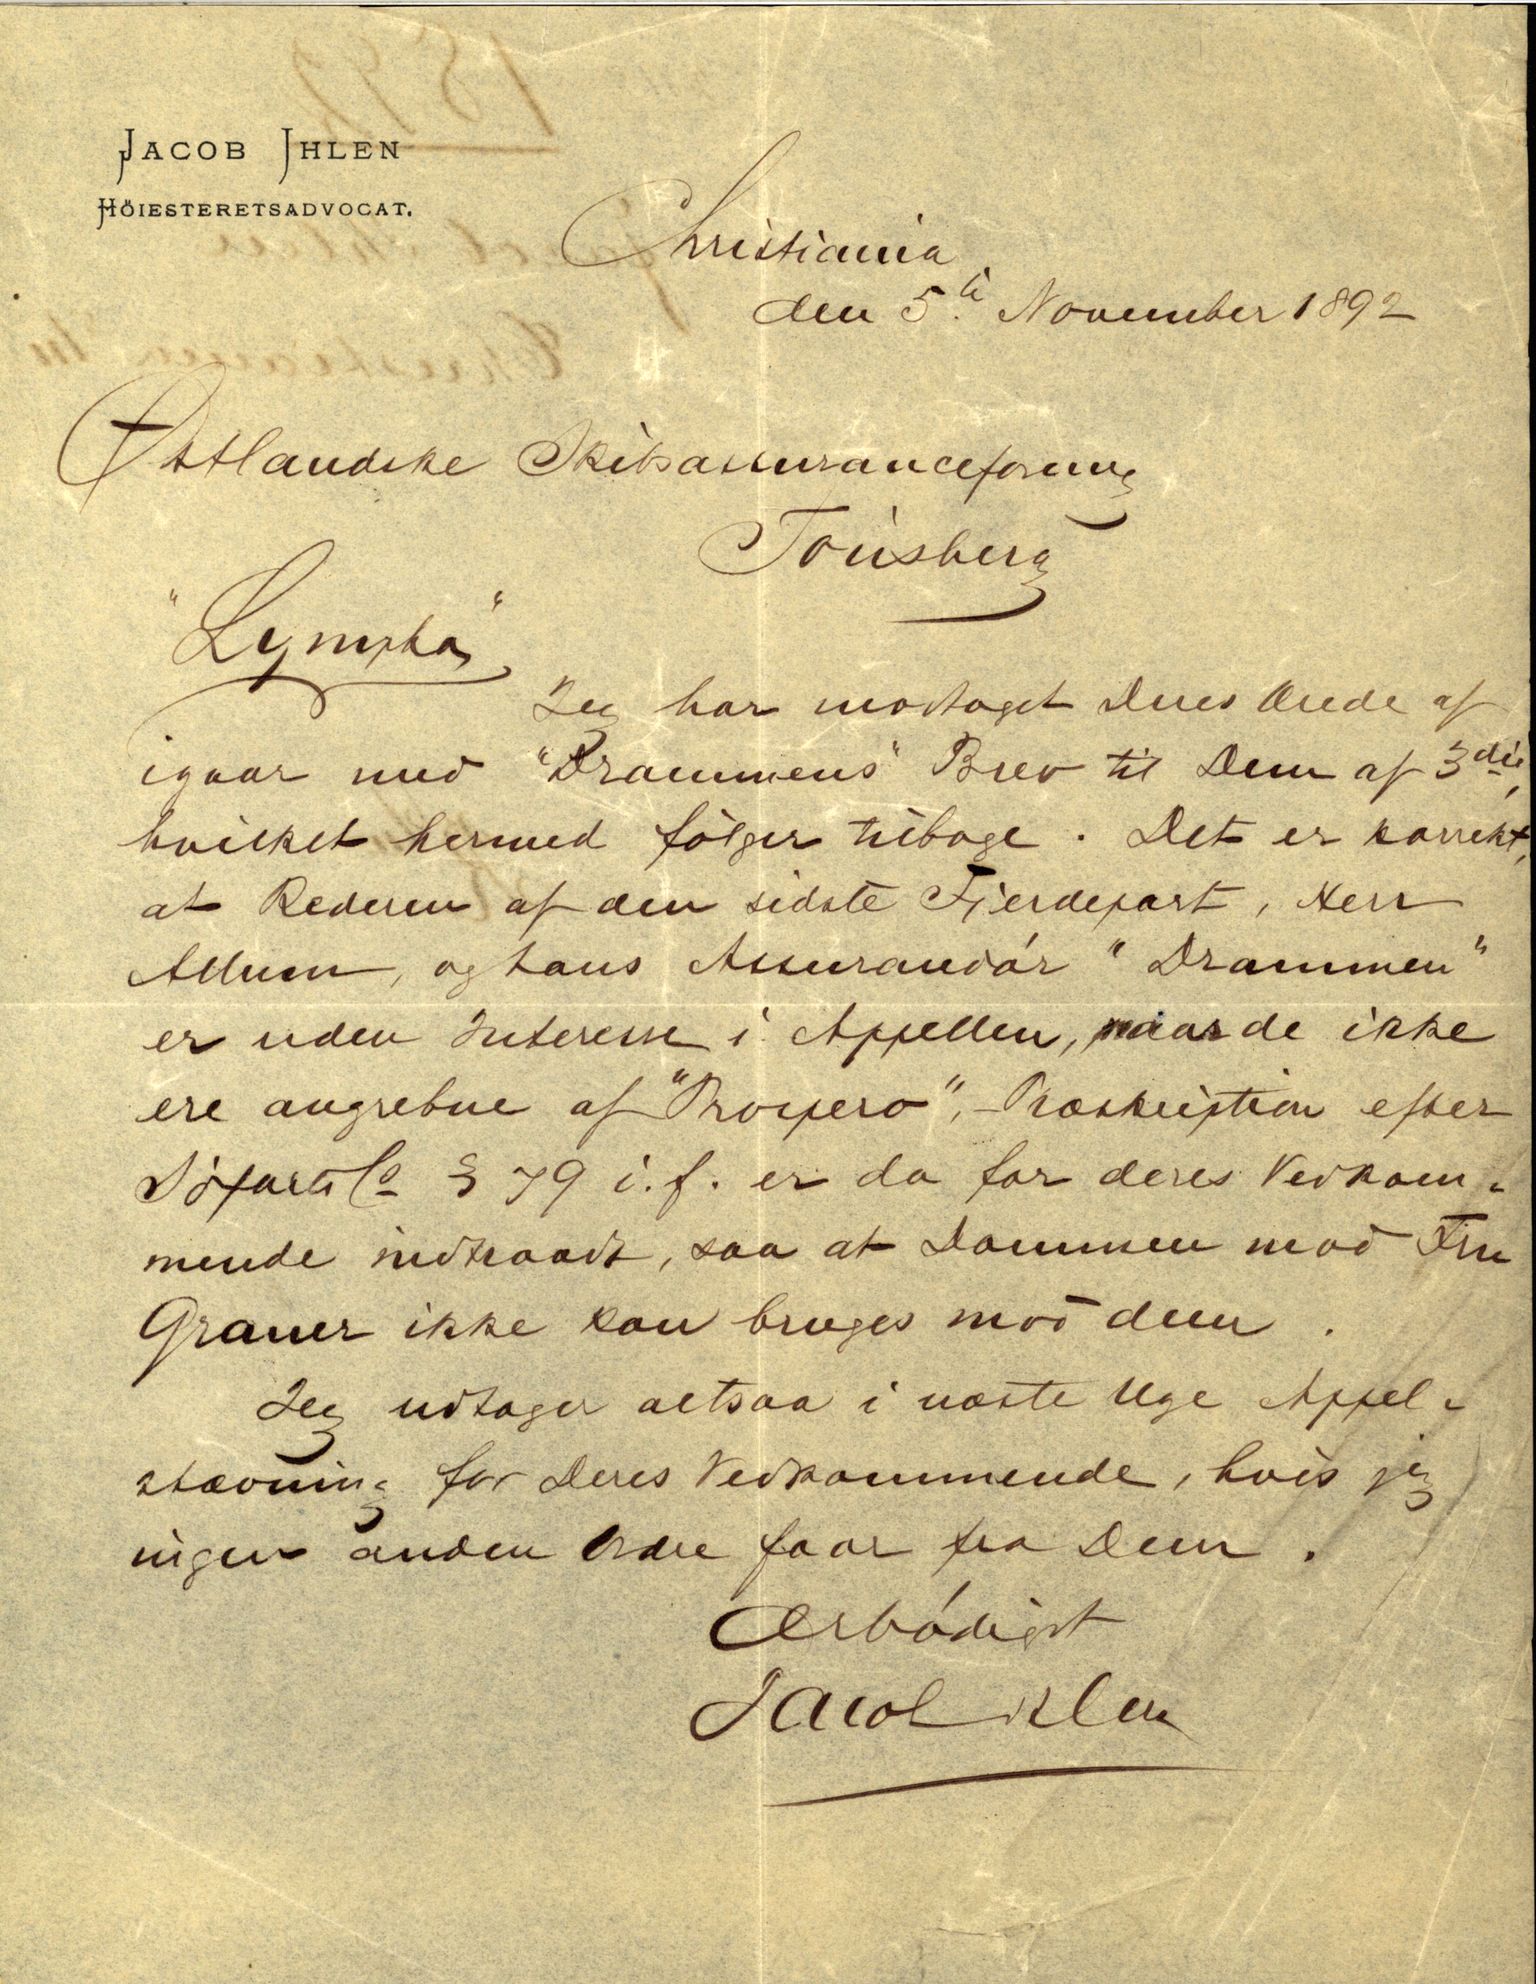 JACOB IHLEN
HÖIESTERETSADVOCAT.
Christiania
den 5te November 1892
Østlandske Skibsassuranceforening
Tönsberg
"Lympha"
Jeg har modtaget Deres Ærede af
igaar med "Drammens" Brev til Dem af 3die,
hvilket hermed følger tilbage. Det er korrekt,
at Rederen af den sidste Fjerdepart, Herr
Allum, og hans Assurandör "Drammen"
er uden Interesse i Appellen, naar de ikke
ere angrebne af "Prospero", - Præskription efter
Söfarts Lo § 79 i.f. er da for deres Vedkom-
mende indtraadt, saa at Dommen mod Fru
Graner ikke kan bruges mod dem.
Jeg udtager altsaa i næste Uge Appel-
stævning for Deres Vedkommende, hvis jeg
ingen anden Ordre faar fra Dem.
Ærbödigst
Jacob Ihlen